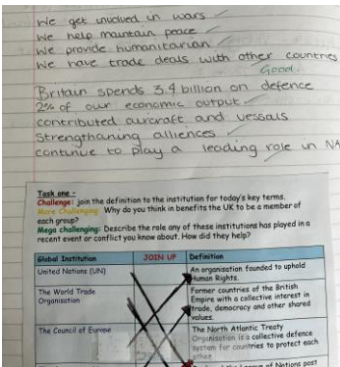 We get involved in wars
We help maintain peace
We provide humanitarian
We have trade deals with other countries
Good.
Britain spends 3.4 billion on defence
2% of our economic output
contributed aircraft and vessals
Strengthaning alliences
continue to play a leading role in NA
Task one -
Challenge: join the definition to the institution for today's key terms.
More Challenging: Why do you think in benefits the UK to be a member of
each group?
Mega challenging: Describe the role any of these institutions has played in a
recent event or conflict you know about. How did they help?
Global Institution JOIN UP Definition
United Nations (UN)
An organisation founded to uphold
Human Rights.
The World Trade
Organisation
Former countries of the British
Empire with a collective interest in
trade, democracy and other shared
values.
The Council of Europe
The North Atlantic Treaty
Organisation is a collective defence
system for countries to protect each
other
of Nations post